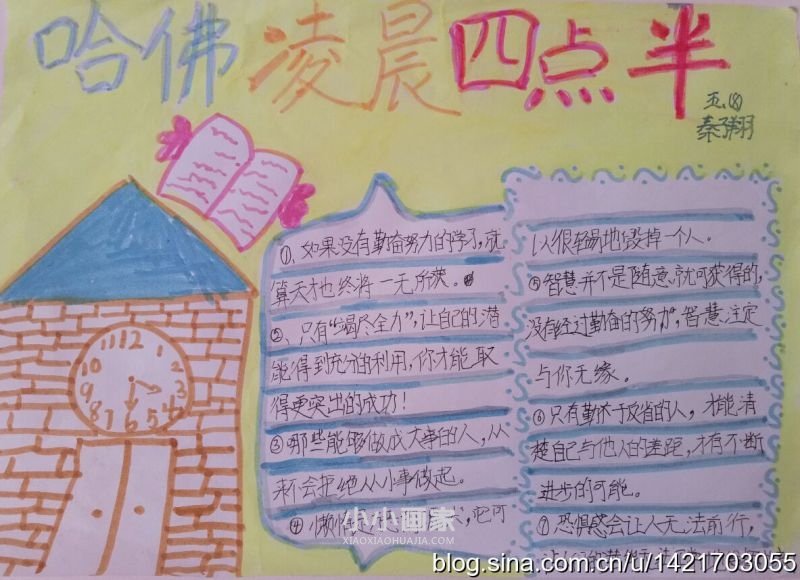 哈佛凌晨四点半
五、⑧
秦子翔
12
1
2
3
4
5
6
7
8
9
10
11
①、如果没有勤奋努力的学习,就
算天才也终将一无所获。
②、只有“竭尽全力”,让自己的潜
能得到充分的利用,你才能取
得更突出的成功!
③那些能够做成大事的人,从
来不会拒绝从小事做起。
④懒惰
它可
以很轻易地毁掉一个人。
⑤智慧并不是随意就可获得的,
没有经过勤奋的努力,智慧注定
与你无缘。
⑥只有勤于反省的人,才能清
楚自己与他人的差距,才有不断
进步的可能。
⑦恐惧感会让人无法前行,
小小画家
XIAOXIAOHUAJIA.COM
blog.sina.com.cn/u/1421703055